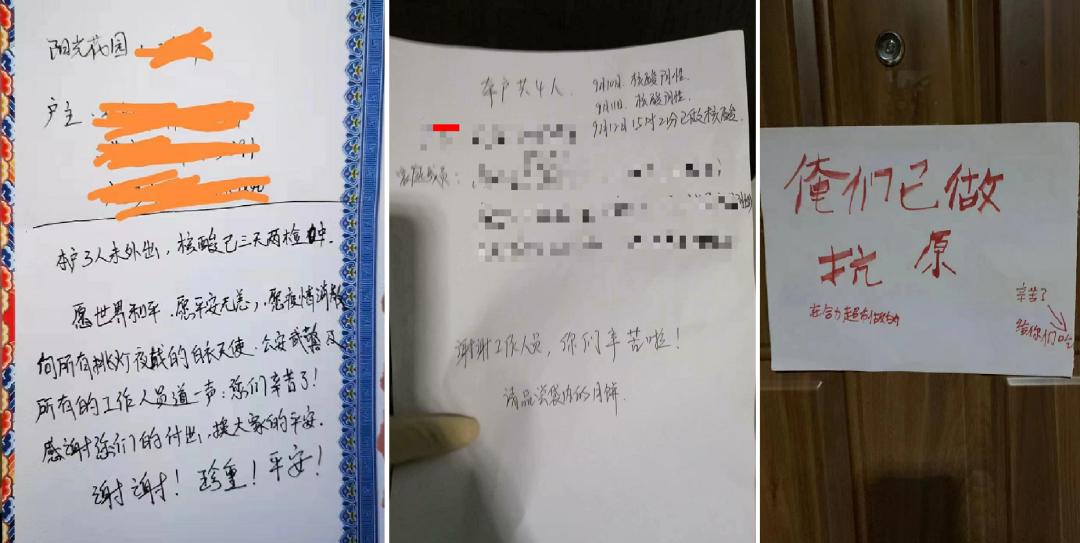 阳光花园
户主:
本户3人未外出,核酸已三天两检
愿世界和平,愿平安无恙,愿疫情消散
向所有挑灯夜战的白衣天使、公安武警及
所有的工作人员道一声:您们辛苦了!
感谢您们的付出,换大家的平安.
谢谢!珍重!平安!
本户共4人
9月10日.核酸阴性.
9月11日.核酸阴性.
9月12日15时21分已做核酸.
家庭成员:
谢谢工作人员,你们辛苦啦!
请品尝袋内的月饼.
俺们已做
抗原
辛苦了
给你们吃